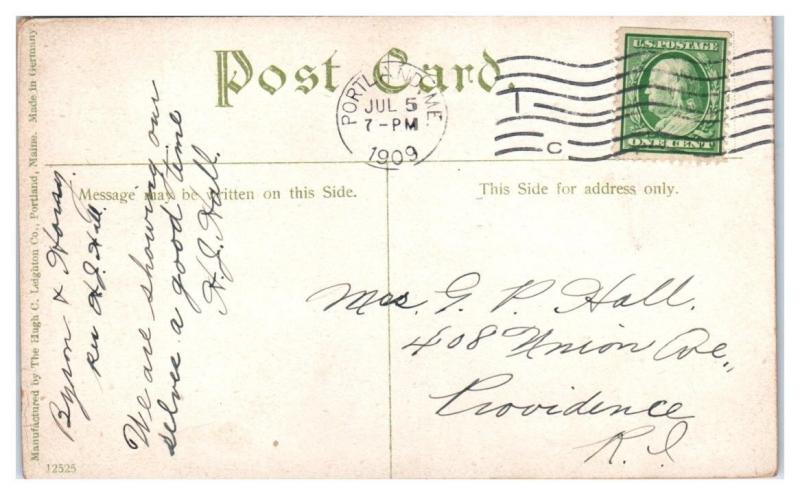 Post Card.
PORTLAND, ME.
JUL 5
7-PM
1909
T
C
U.S. POSTAGE
ONE CENT
Message may be written on this Side.
This Side for address only.
We are showing our
selves a good time
H. J. Hall.
Byron &
per H J Hall
Mrs. G. P. Hall.
408 Union Ave,
Providence
R. I.
Manufactured by The Hugh C. Leighton Co., Portland, Maine. Made in Germany
12525